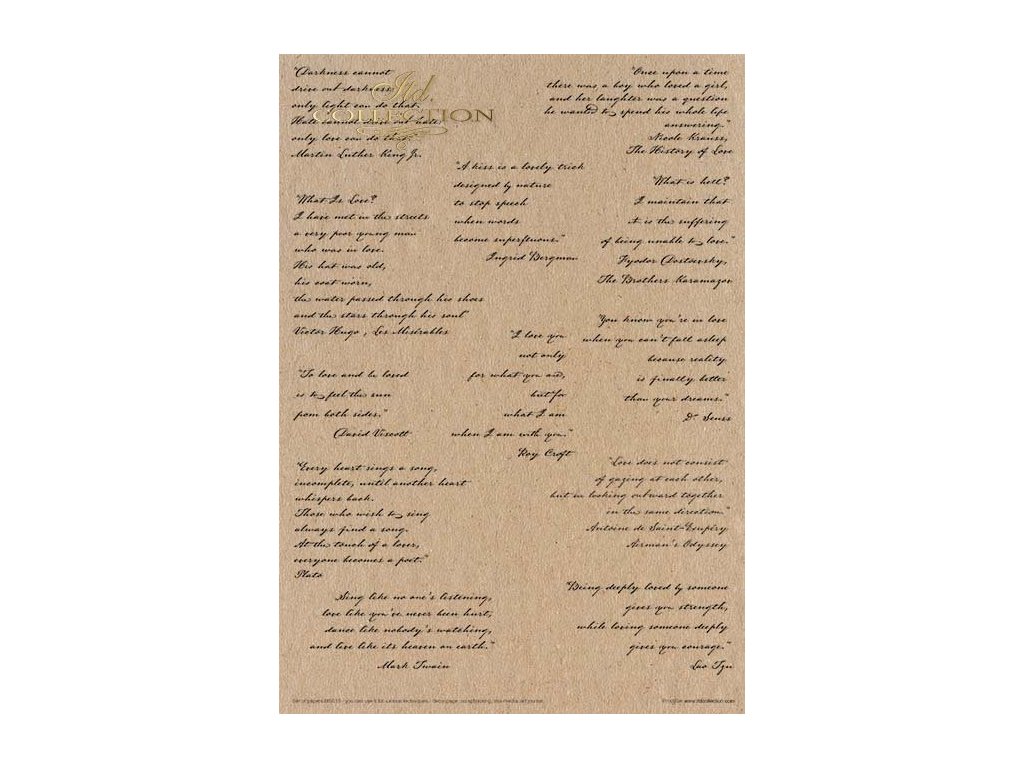 "Darkness cannot
drive out darkness:
only light can do that.
Hate cannot drive out hate:
only love can do that."
Martin Luther King Jr.
Itd.
COLLECTION
"Once upon a time
there was a boy who loved a girl,
and her laughter was a question
he wanted to spend his whole life
answering."
Nicole Krauss,
The History of Love
"A kiss is a lovely trick
designed by nature
to stop speech
when words
become superfluous."
Ingrid Bergman
"What is hell?
I maintain that
it is the suffering
of being unable to love."
Fyodor Dostoevsky,
The Brothers Karamazov
"What Is Love?
I have met in the streets
a very poor young man
who was in love.
His hat was old,
his coat worn,
the water passed through his shoes
and the stars through his soul"
Victor Hugo , Les Misérables
"I love you
not only
for what you are,
but for
what I am
when I am with you."
Roy Croft
"You know you're in love
when you can't fall asleep
because reality
is finally better
than your dreams."
Dr. Seuss
"To love and be loved
is to feel the sun
from both sides."
David Viscott
"Every heart sings a song,
incomplete, until another heart
whispers back.
Those who wish to sing
always find a song.
At the touch of a lover,
everyone becomes a poet."
Plato
"Love does not consist
of gazing at each other,
but in looking outward together
in the same direction."
Antoine de Saint-Exupéry
Airman's Odyssey
Sing like no one's listening,
love like you've never been hurt,
dance like nobody's watching,
and live like its heaven on earth."
Mark Twain
"Being deeply loved by someone
gives you strength,
while loving someone deeply
gives you courage."
Lao Tzu
www.itdcollection.com